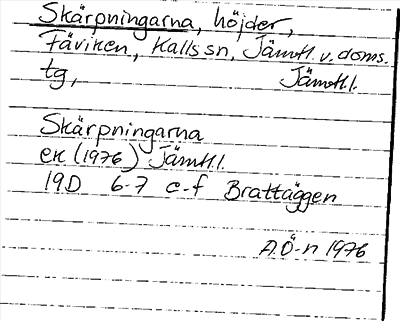 Skärpningarna, höjder,
Fäviken, Kalls sn, Jämtl. v. doms.
tg, Jämtl.l.
Skärpningarna
ek (1976) Jämtl.l.
19D 6-7 e-f Brattäggen
A.Ö-n 1976